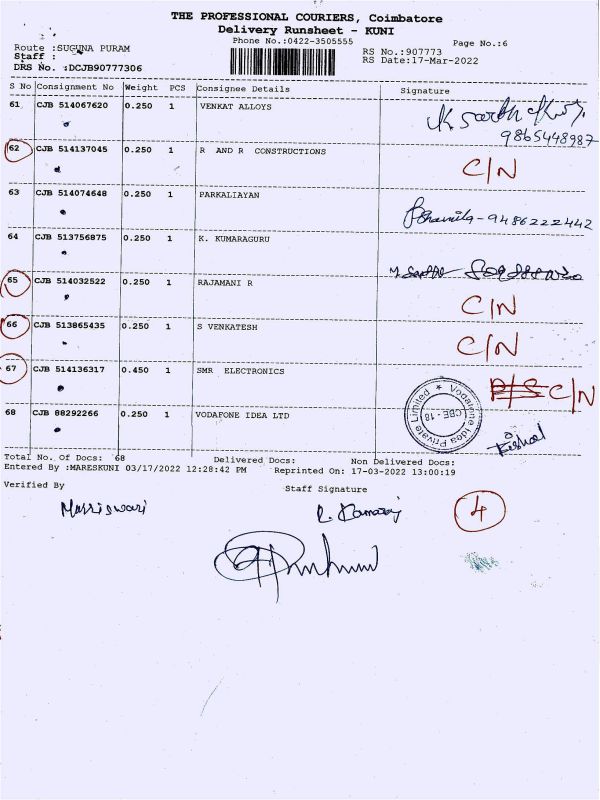 THE PROFESSIONAL COURIERS, Coimbatore
Delivery Runsheet - KUNI
Phone No.:0422-3505555
Page No.:6
Route :SUGUNA PURAM
RS No.:907773
Staff :
RS Date:17-Mar-2022
DRS No. :DCJB90777306
S No Consignment No Weight PCS Consignee Details Signature
61 CJB 514067620 0.250 1 VENKAT ALLOYS
9865448987
62 CJB 514137045 0.250 1 R AND R CONSTRUCTIONS C/N
63 CJB 514074648 0.250 1 PARKALIAYAN
- 9486222442
64 CJB 513756875 0.250 1 K. KUMARAGURU
65 CJB 514032522 0.250 1 RAJAMANI R
C/N
66 CJB 513865435 0.250 1 S VENKATESH
C/N
67 CJB 514136317 0.450 1 SMR ELECTRONICS
C/N
68 CJB 88292266 0.250 1 VODAFONE IDEA LTD
Vodafone Idea Private Limited ★
CBE - 18
Total No. Of Docs: 68 Delivered Docs: Non Delivered Docs:
Entered By :MARESKUNI 03/17/2022 12:28:42 PM Reprinted On: 17-03-2022 13:00:19
Verified By Staff Signature
4